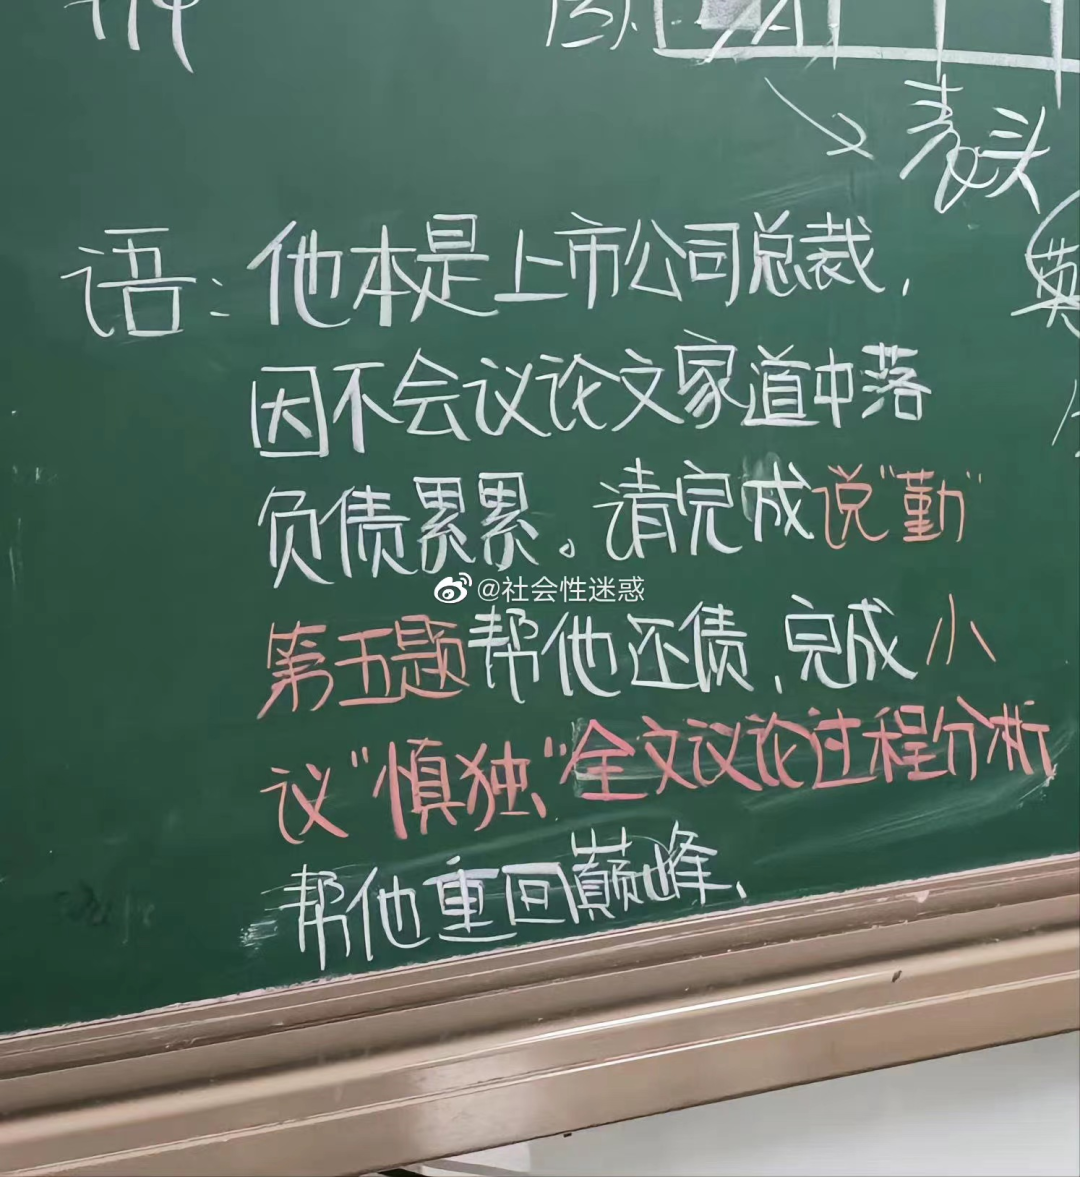 表头
语：他本是上市公司总裁，
因不会议论文家道中落
负债累累。请完成说“勤”
@社会性迷惑
第五题帮他还债，完成小
议“慎独”全文议论过程分析
帮他重回巅峰、
英